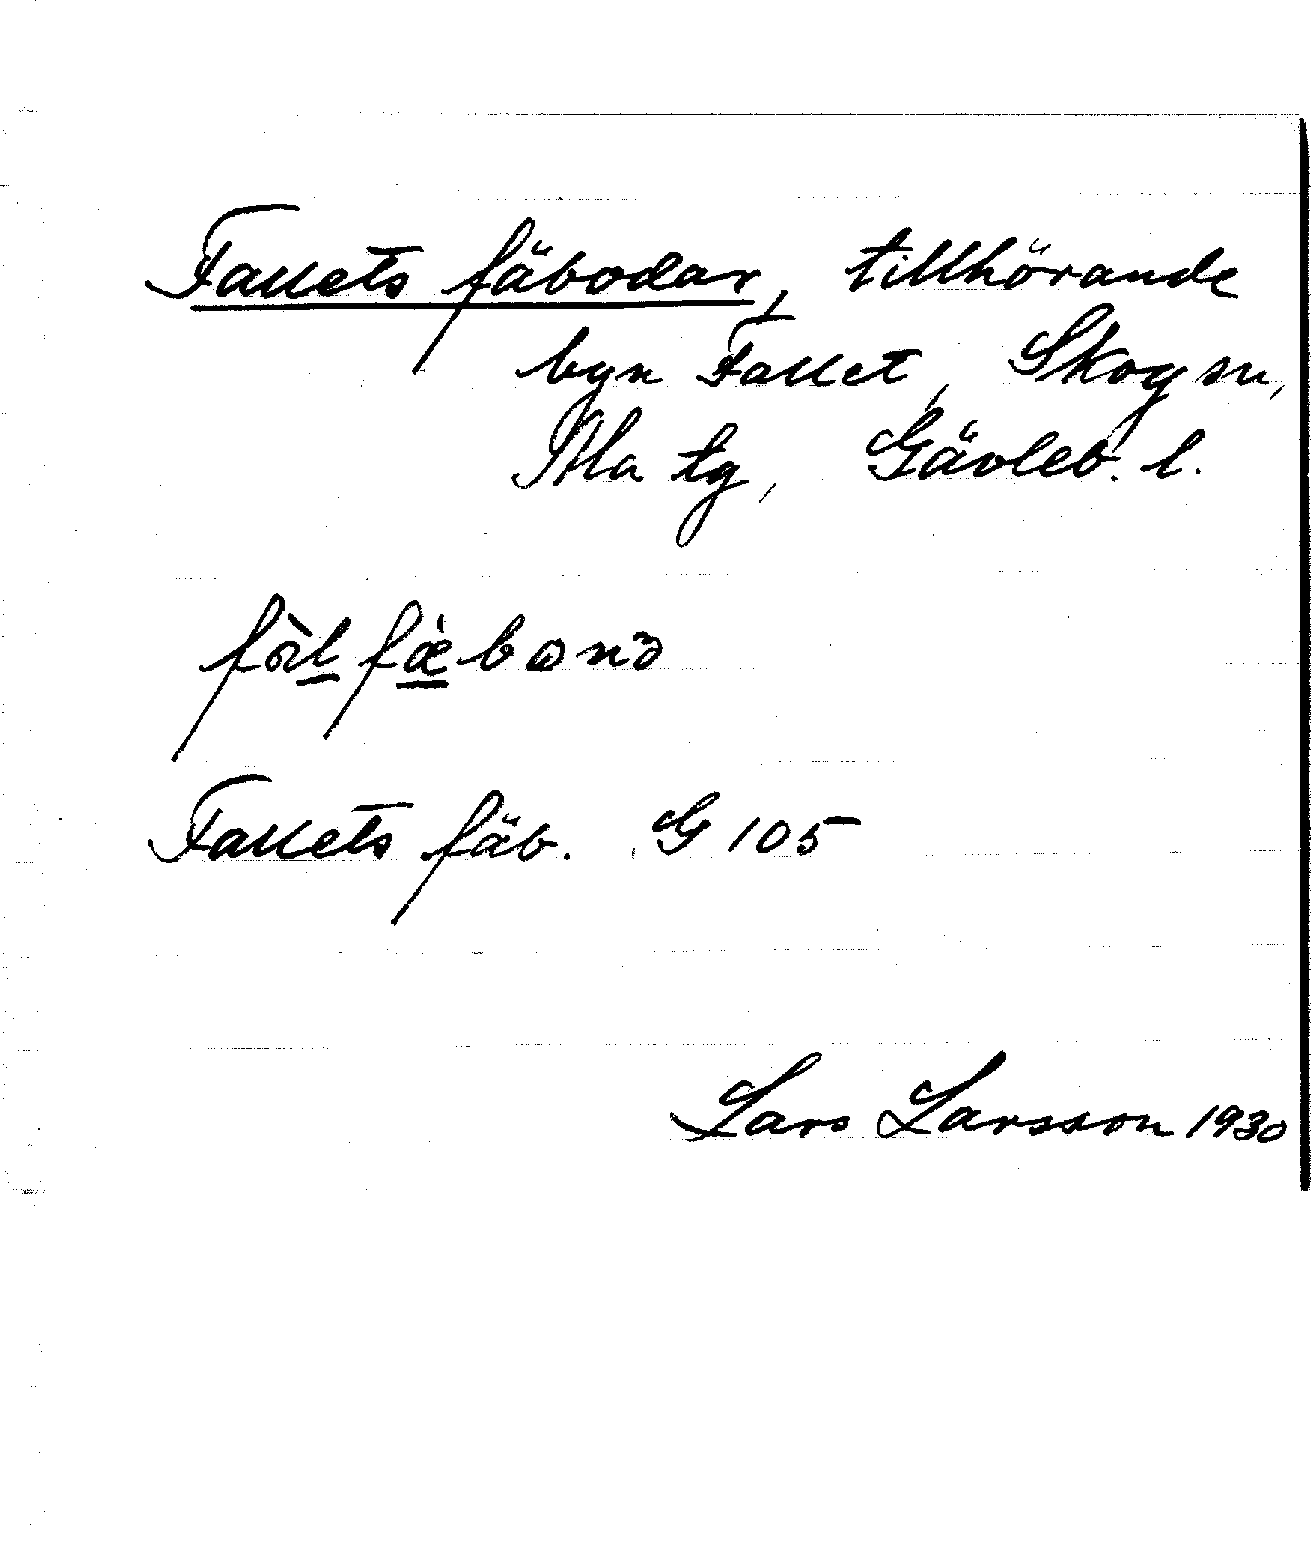 Fallets fäbodar, tillhörande
byn Fallet, Skog sn,
Ala tg, Gävleb. l.
Fallets fäb. G 105
Lars Larsson 1930